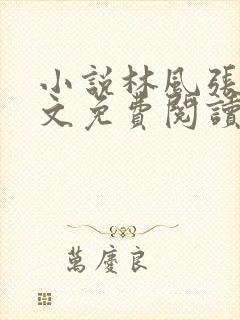 小說林風張
文免費閱讀
萬慶良